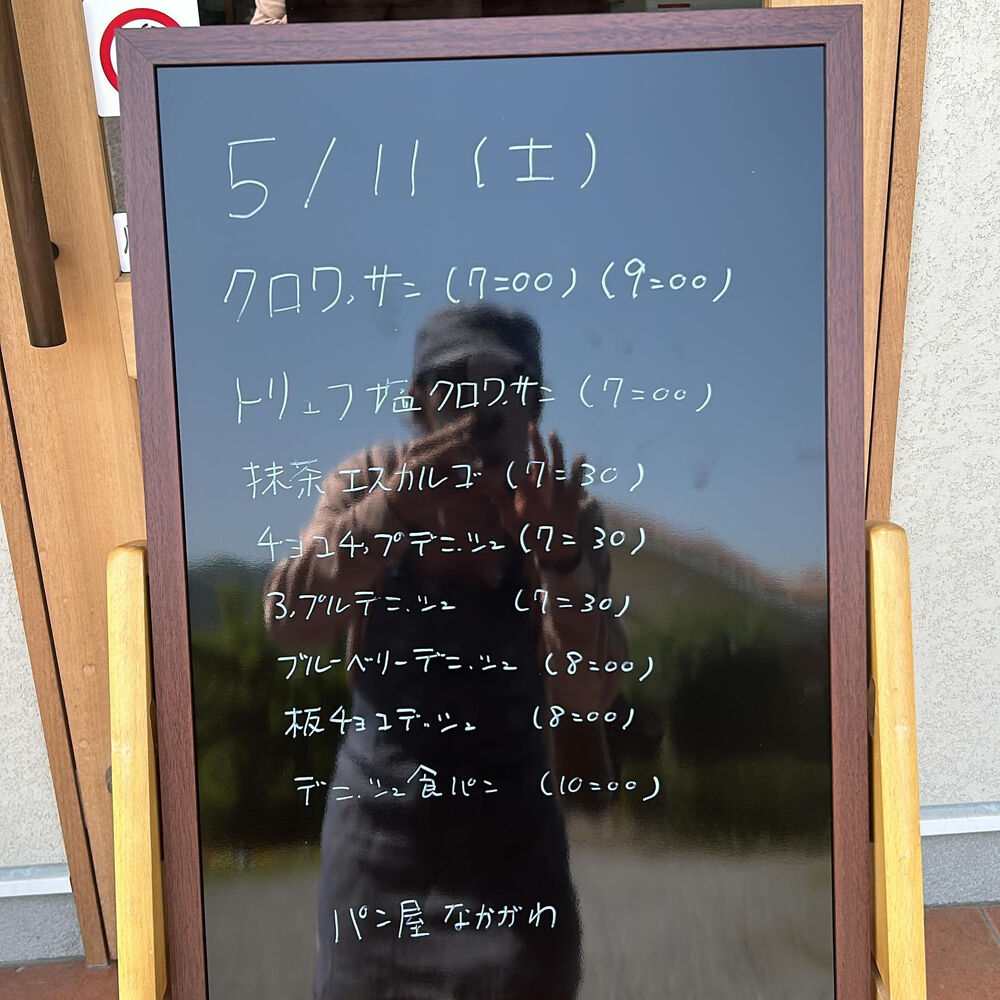 5/11(土)
クロワッサン (7:00) (9:00)
トリュフ塩クロワッサン (7:00)
抹茶エスカルゴ (7:30)
チョコチップデニッシュ (7:30)
アップルデニッシュ (7:30)
ブルーベリーデニッシュ (8:00)
板チョコデニッシュ (8:00)
デニッシュ食パン (10:00)
パン屋 なかがわ